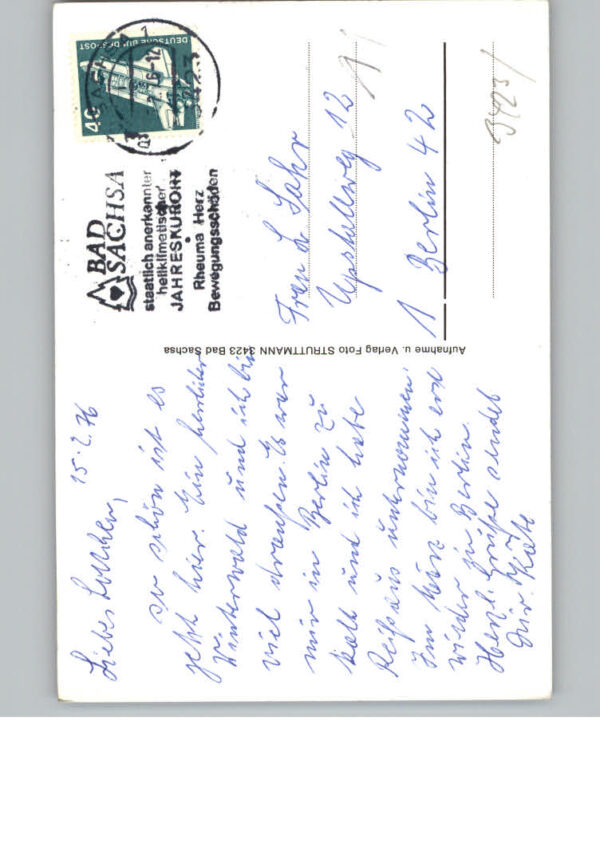 15.2.76
Liebes Lottchen,
so schön ist es
jetzt hier. Ein herrlicher
Winterwald und ich bin
viel draußen. Es war
mir in Berlin zu
kalt und ich habe
Reißaus unternommen.
Im März bin ich erst
wieder in Berlin.
Herzl. Grüße sendet
Dir Käte
Aufnahme u. Verlag Foto STRUTTMANN 3423 Bad Sachsa
BAD
SACHSA
staatlich anerkannter
heilklimatischer
JAHRESKURORT
Rheuma Herz
Bewegungsschäden
DEUTSCHE BUNDESPOST
40
Frau L. Sahr
Upstallweg 12
1 Berlin 42
3423/